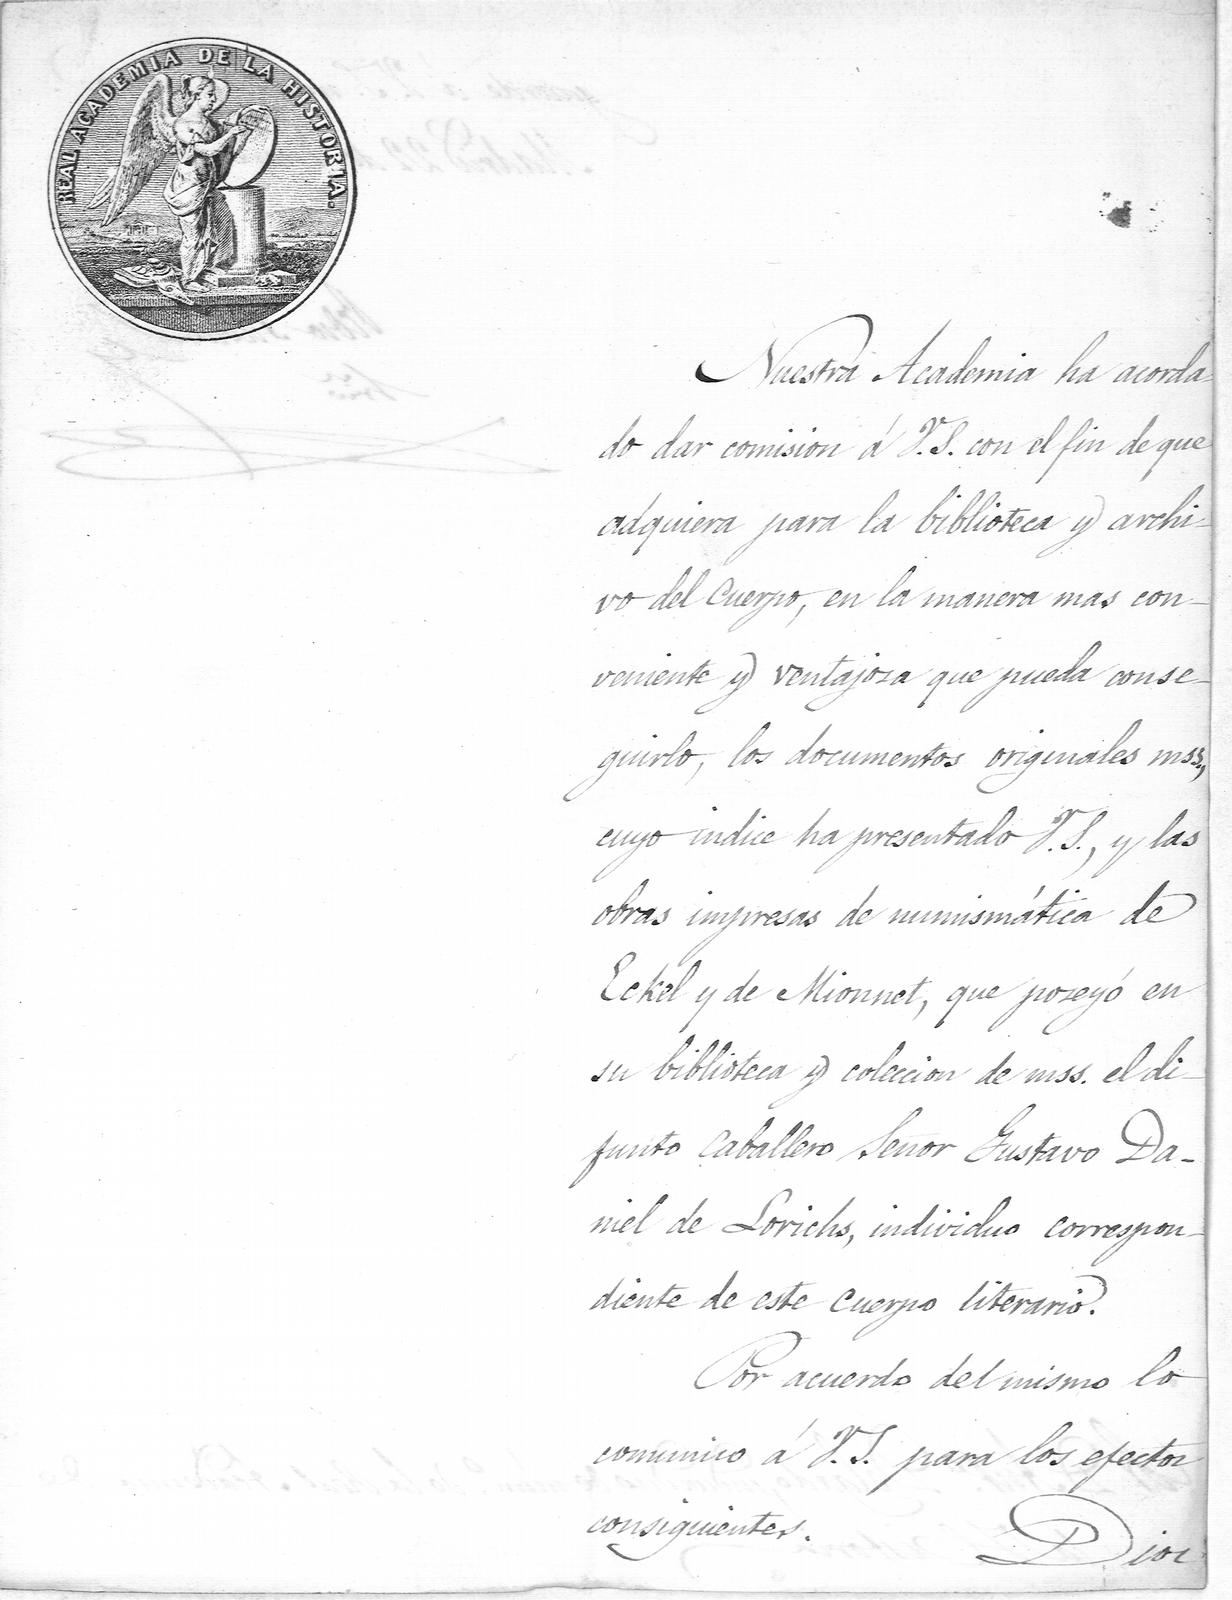 REAL ACADEMIA DE LA HISTORIA.
Nuestra Academia ha acorda-
do dar comision á V.S. con el fin de que
adquiera para la biblioteca y archi-
vo del Cuerpo, en la manera mas con-
veniente y ventajosa que pueda conse-
guirlo, los documentos originales mss.,
cuyo indice ha presentado V.S., y las
obras impresas de numismática de
Eckel y de Mionnet, que poseyó en
su biblioteca y coleccion de mss. el di-
funto Caballero Señor Gustavo Da-
niel de Lorichs, individuo correspon-
diente de este Cuerpo literario.
Por acuerdo del mismo lo
comunico á V.S. para los efectos
consiguientes.
Dios